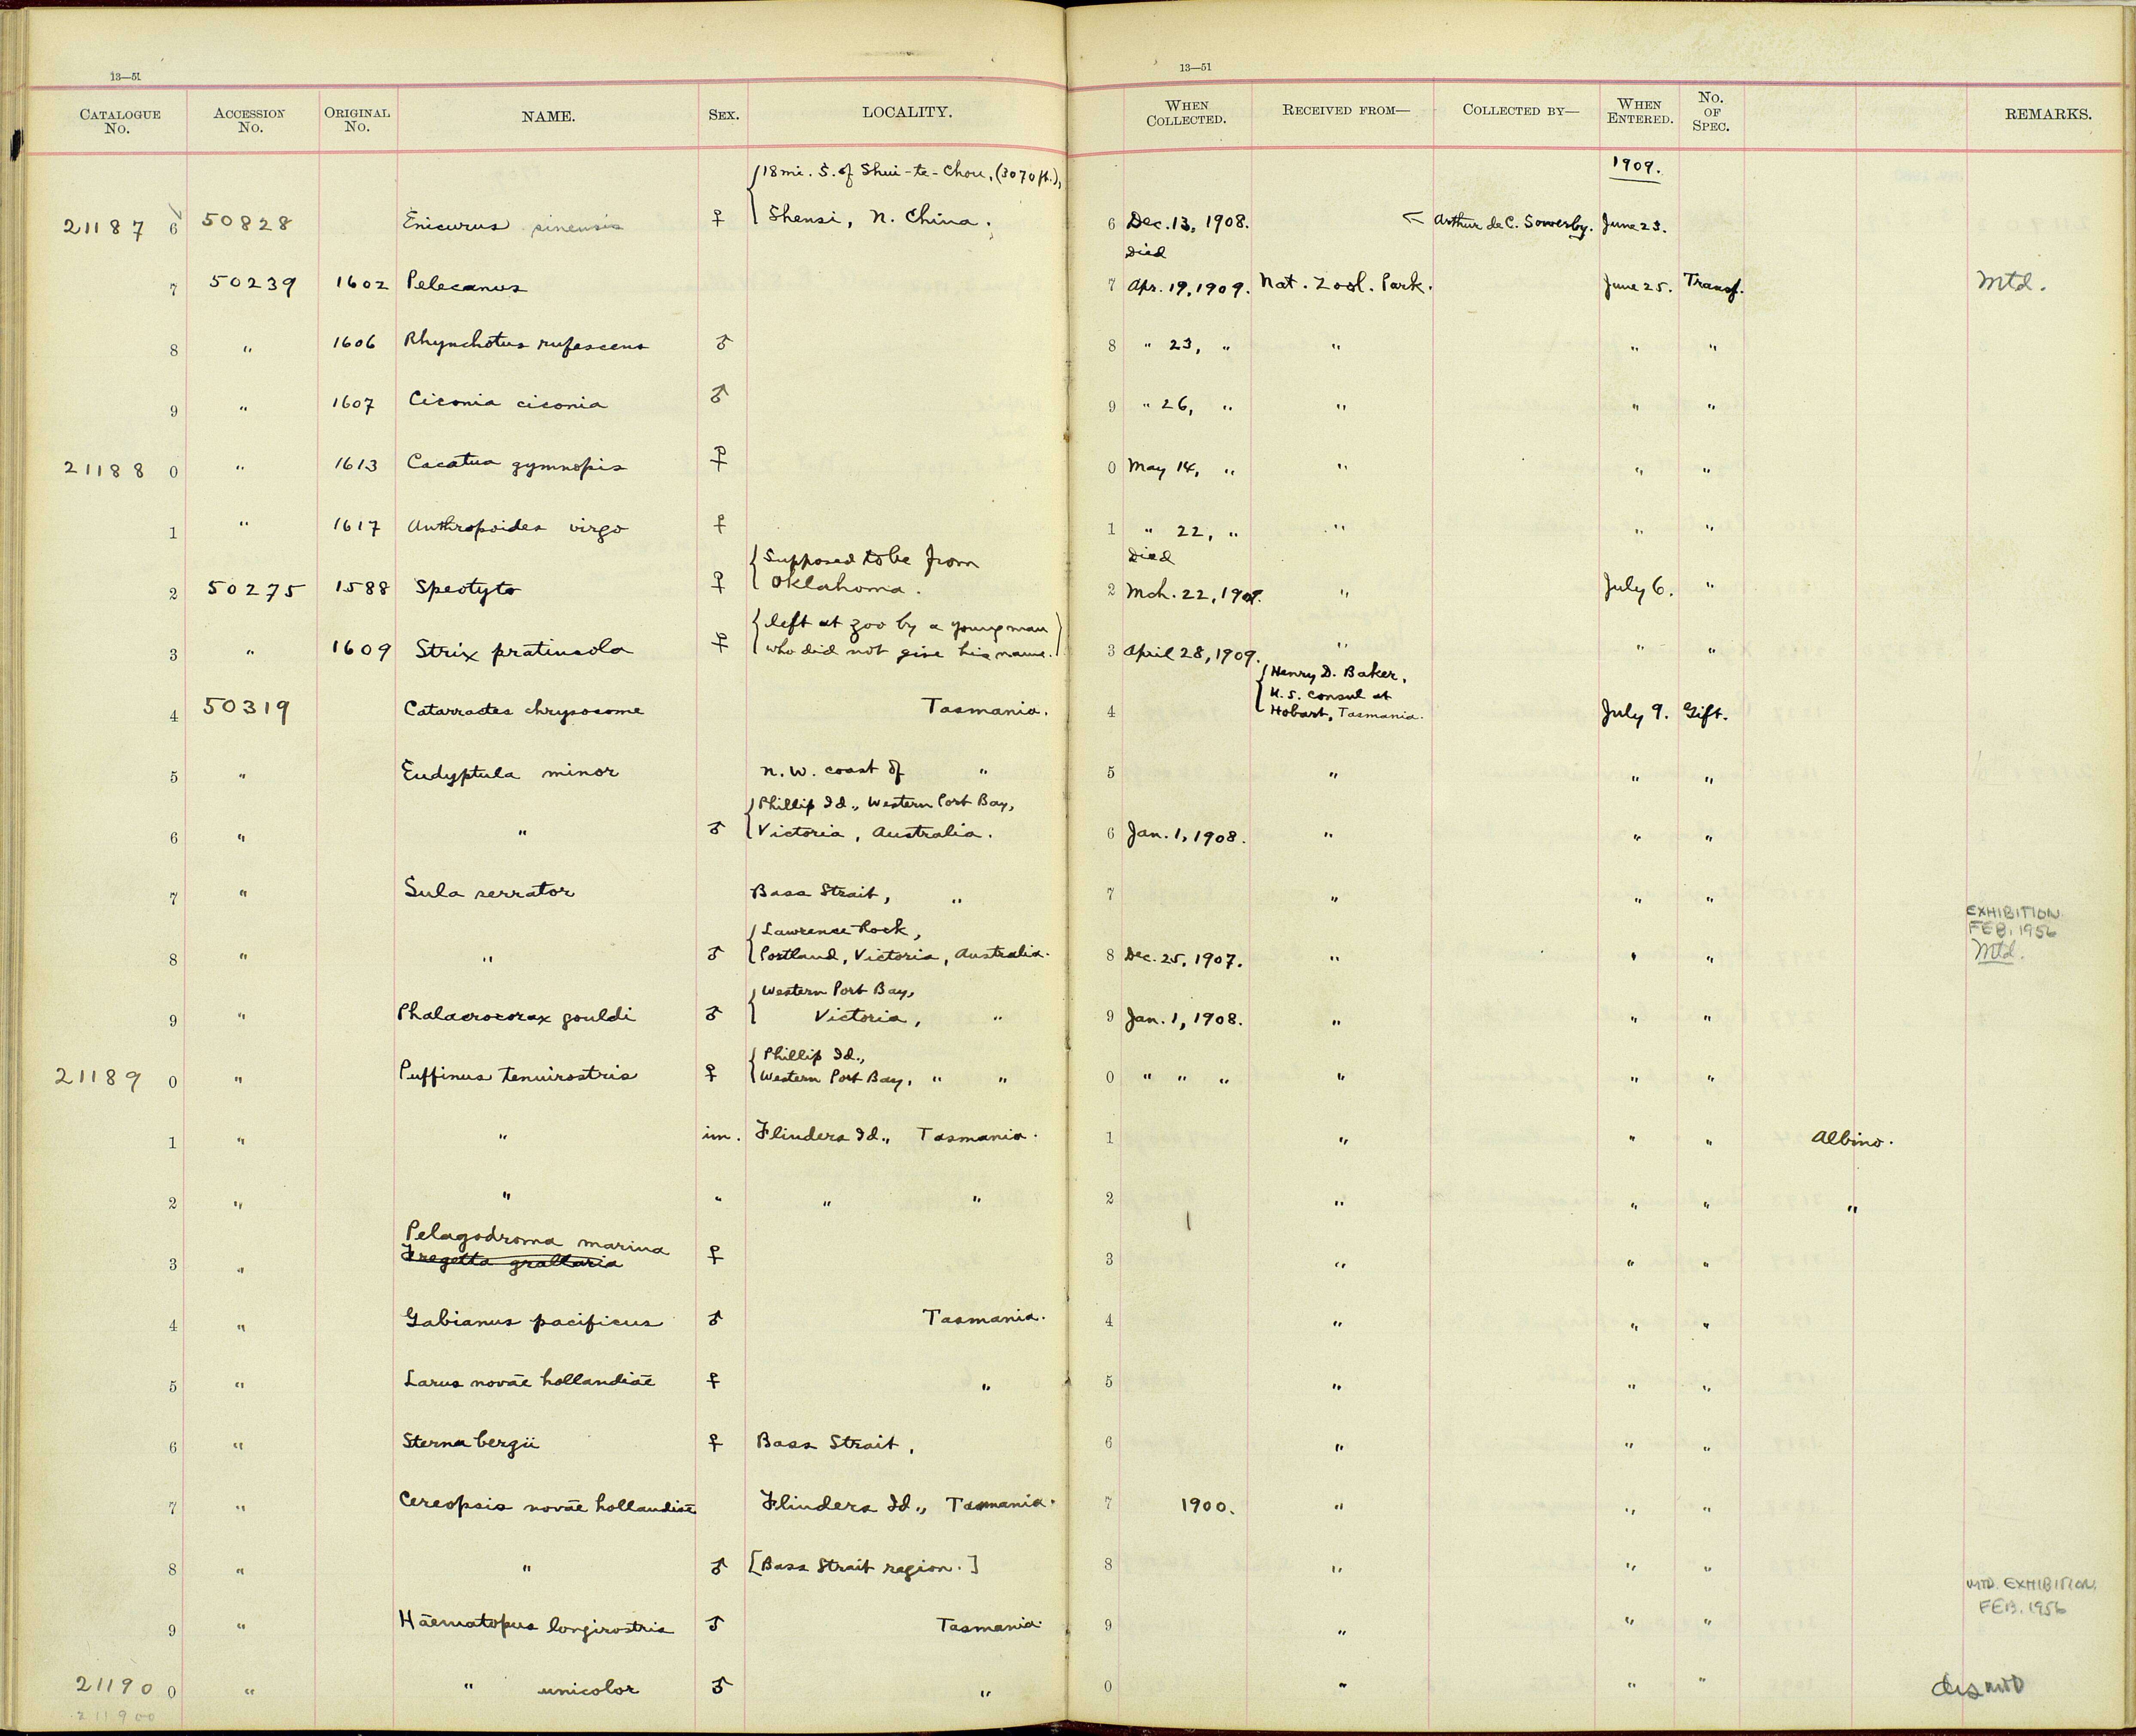 13—51
13—51
CATALOGUE No. ACCESSION No. ORIGINAL No. NAME. SEX. LOCALITY. WHEN COLLECTED. RECEIVED FROM— COLLECTED BY— WHEN ENTERED. No. OF SPEC. REMARKS.
1909.
18 mi. S. of Shui-te-Chou, (3070 ft.),
21187 6 50828 Enicurus sinensis ♀ Shensi, N. China. 6 Dec. 13, 1908. < Arthur de C. Sowerby. June 23.
Died
7 50239 1602 Pelecanus 7 Apr. 19, 1909. Nat. Zool. Park. June 25. Transf. Mtd.
8 " 1606 Rhynchotus rufescens ♂ 8 " 23, " " " "
9 " 1607 Ciconia ciconia ♂ 9 " 26, " " " "
21188 0 " 1613 Cacatua gymnopis ♀ 0 May 14, " " " "
1 " 1617 Anthropoides virgo ♀ 1 " 22, " " " "
Supposed to be from Died
2 50275 1588 Speotyto ♀ Oklahoma. 2 Mch. 22, 1909. " July 6. "
left at zoo by a young man
3 " 1609 Strix pratincola ♀ who did not give his name. 3 April 28, 1909. " " "
Henry D. Baker,
U.S. Consul at
4 50319 Catarractes chrysocome Tasmania. 4 Hobart, Tasmania. July 9. Gift.
5 " Eudyptula minor N.W. coast of " 5 " " "
Phillip Id., Western Port Bay,
6 " " ♂ Victoria, Australia. 6 Jan. 1, 1908. " " "
7 " Sula serrator Bass Strait, " 7 " " "
EXHIBITION
FEB. 1956
Lawrence Rock,
8 " " ♂ Portland, Victoria, Australia. 8 Dec. 25, 1907. " " " Mtd.
Western Port Bay,
9 " Phalacrocorax gouldi ♂ Victoria, " 9 Jan. 1, 1908. " " "
Phillip Id.,
21189 0 " Puffinus tenuirostris ♀ Western Port Bay, " " 0 " " " " " "
1 " " im. Flinders Id., Tasmania. 1 " " " Albino.
2 " " " " " 2 " " " "
Pelagodroma marina
3 " Fregetta grallaria ♀ 3 " " "
4 " Gabianus pacificus ♂ Tasmania. 4 " " "
5 " Larus novae hollandiae ♀ " 5 " " "
6 " Sterna bergii ♀ Bass Strait, 6 " " "
7 " Cereopsis novae hollandiae Flinders Id., Tasmania. 7 1900. " " "
8 " " ♂ [Bass Strait region.] 8 " " "
MTD. EXHIBITION.
FEB. 1956
9 " Haematopus longirostris ♂ Tasmania. 9 " " "
21190 0 " " unicolor ♂ " 0 " " " dismtd
211900